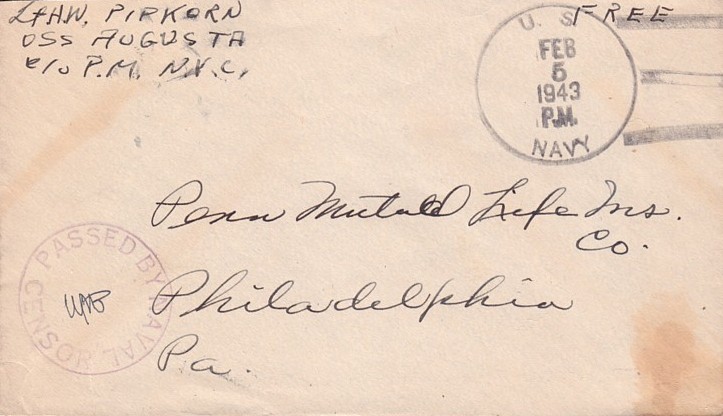 Lt H.W. PIPKORN
USS AUGUSTA
c/o P.M. N.Y.C.
FREE
U. S.
FEB
5
1943
P.M.
NAVY
Penn Mutual Life Ins.
Co.
Philadelphia
Pa.
PASSED BY NAVAL CENSOR